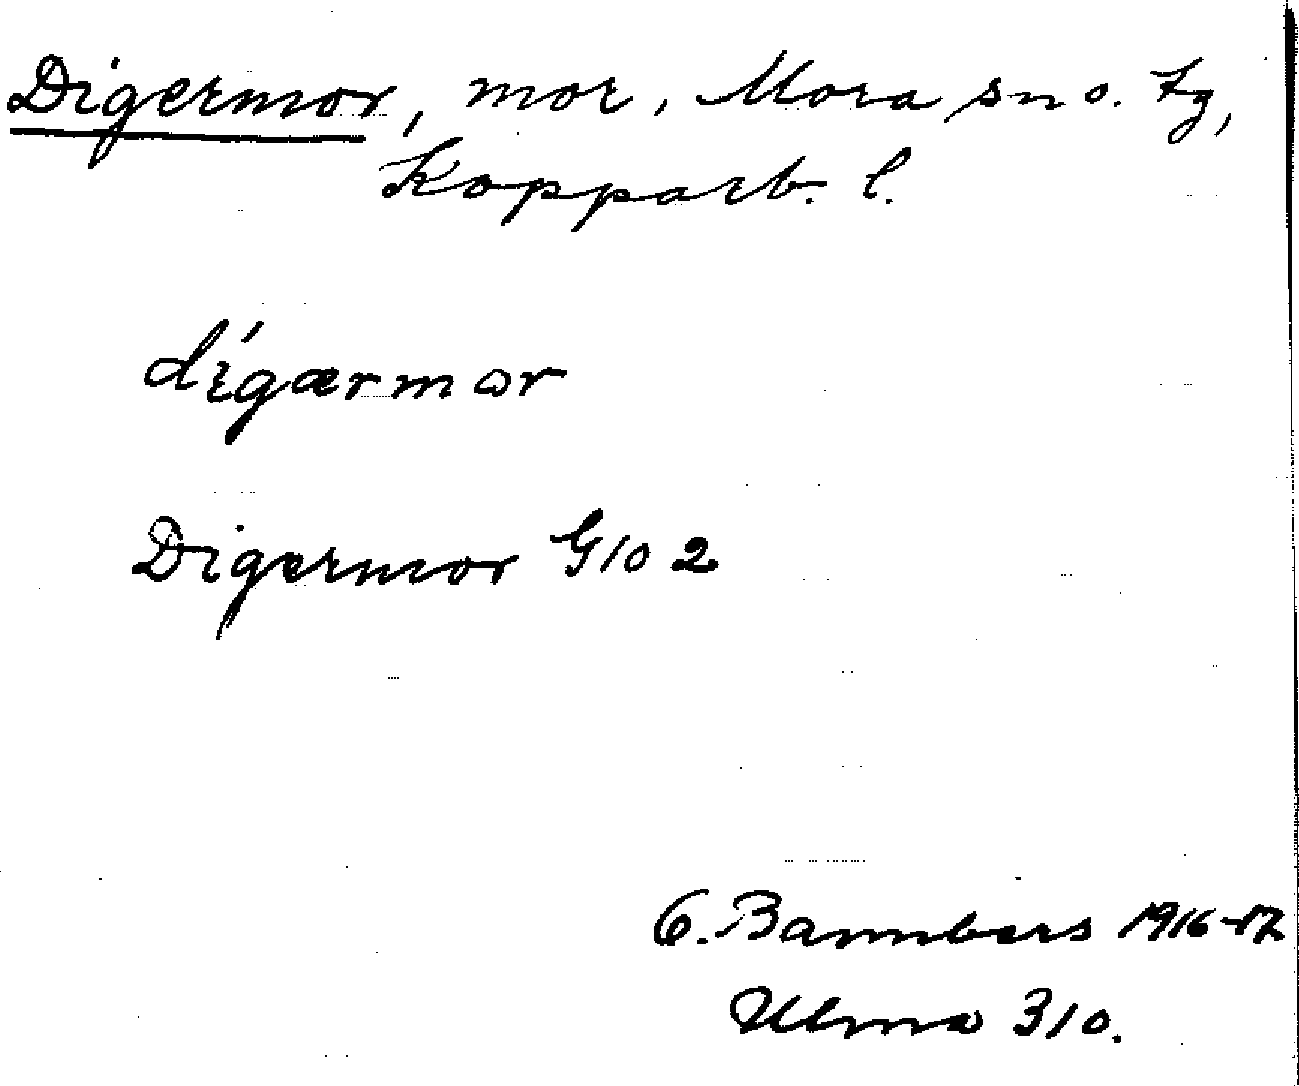 Digermor, mor, Mora sn o. tg,
Kopparb. l.
dígærmor
Digermor G10 2
O. Bannbers 1916-17
Ulma 310.